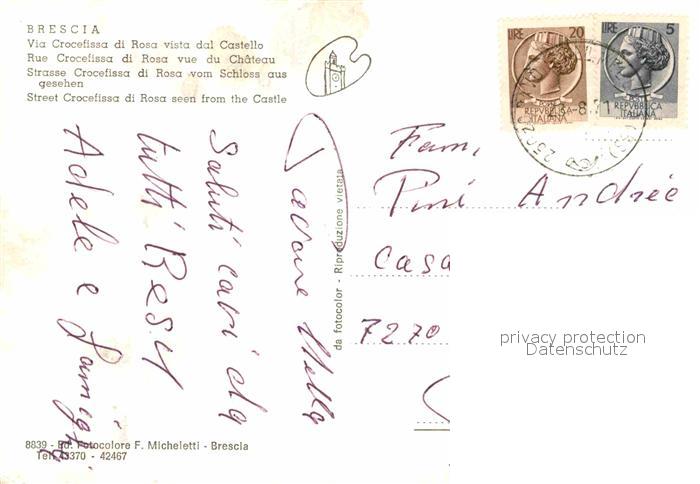 BRESCIA
Via Crocefissa di Rosa vista dal Castello
Rue Crocefissa di Rosa vue du Château
Strasse Crocefissa di Rosa vom Schloss aus
gesehen
Street Crocefissa di Rosa seen from the Castle
LIRE 20
POSTE
REPVBBLICA
ITALIANA
LIRE 5
POSTE
REPVBBLICA
ITALIANA
Mella
Saluti cari da
tutti
Adele e famiglia
da fotocolor - Riproduzione vietata
Fam.
Pini Andrée
Casa
7270
privacy protection
Datenschutz
8839 - Ed. Fotocolore F. Micheletti - Brescia
Tel. 43370 - 42467